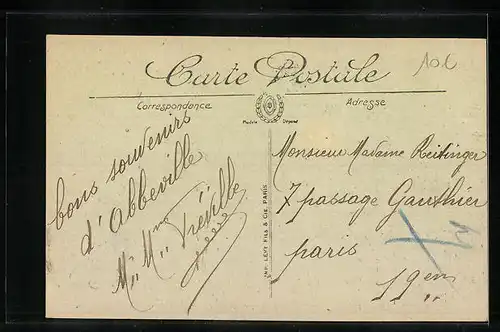 10€
Carte Postale
Correspondance
Adresse
Modèle Déposé
bons souvenirs
d'Abbeville
Mr Mme Tréville
Monsieur Madame Reitinger
7 passage Gauthier
paris
19em
IMP. LÉON FILS & CIE, PARIS